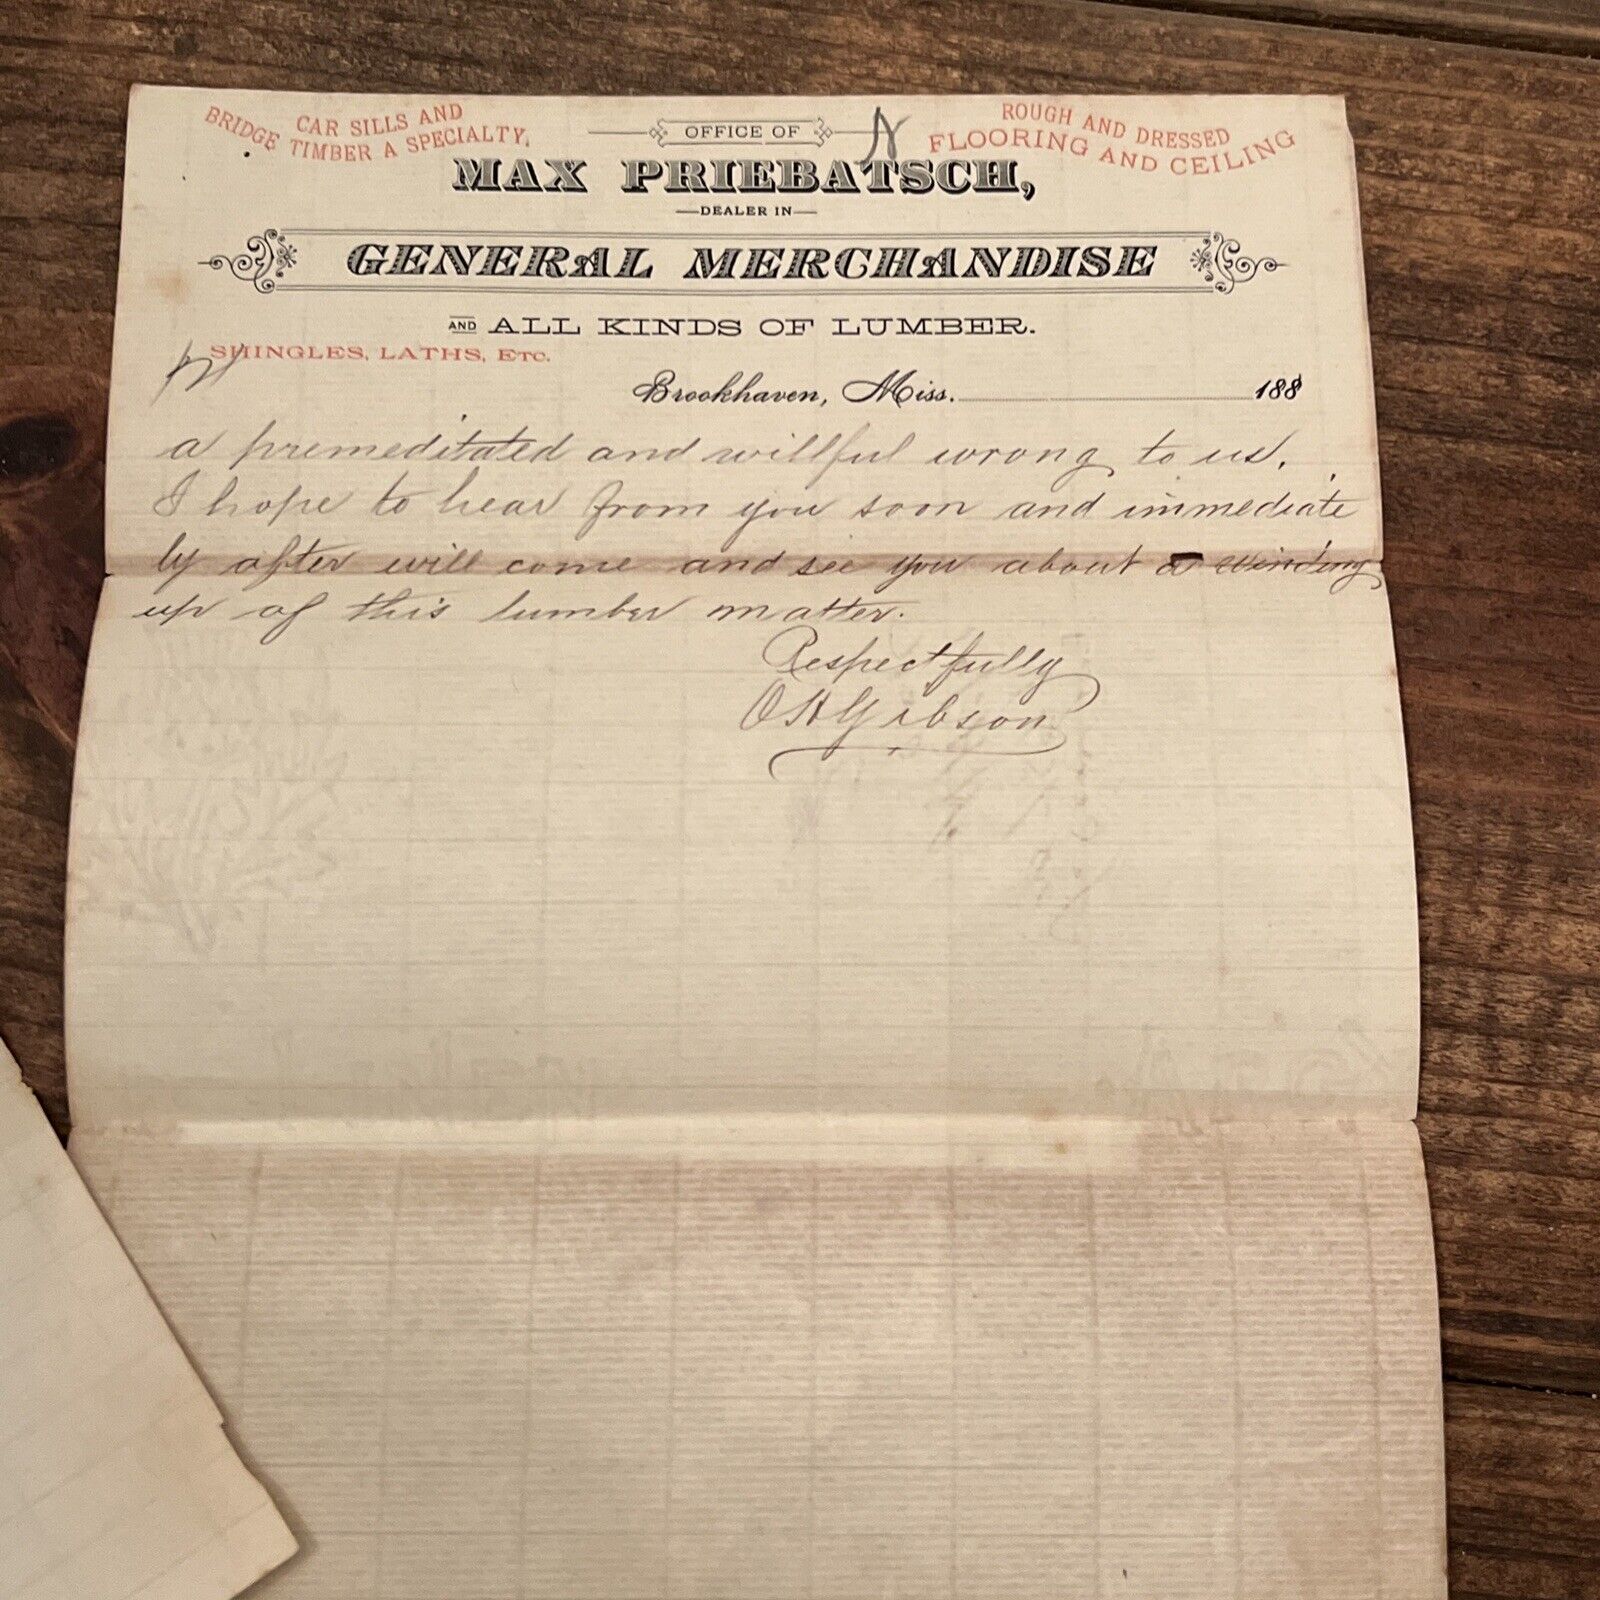 CAR SILLS AND
BRIDGE TIMBER A SPECIALTY.
OFFICE OF
ROUGH AND DRESSED
FLOORING AND CEILING
MAX PRIEBATSCH,
DEALER IN
GENERAL MERCHANDISE
AND ALL KINDS OF LUMBER.
SHINGLES, LATHS, ETC.
Brookhaven, Miss. 188
a premeditated and willful wrong to us.
I hope to hear from you soon and immediate
ly after will come and see you about a winding
up of this lumber matter.
Respectfully
O H Gibson